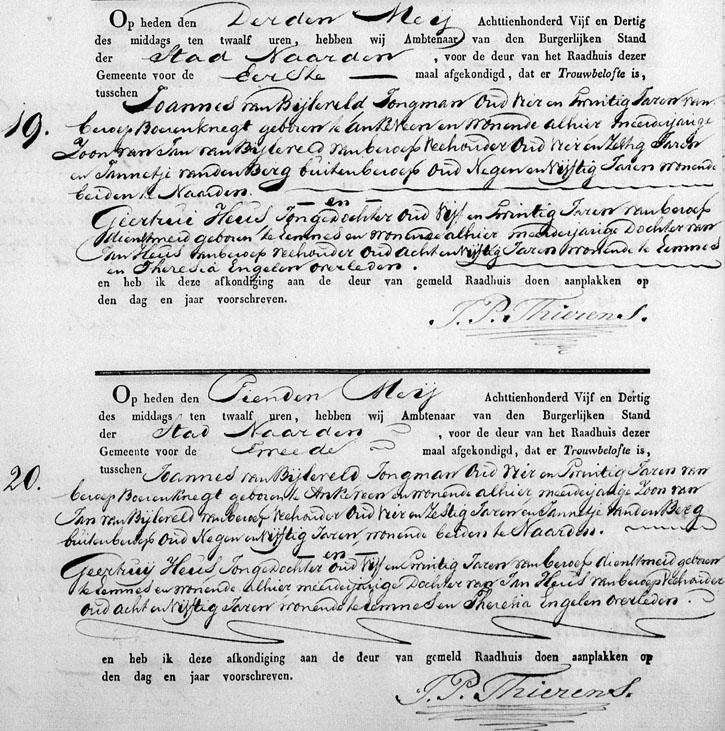 Op heden den Derden Meij Achttienhonderd Vijf en Dertig
des middags ten twaalf uren, hebben wij Ambtenaar van den Burgerlijken Stand
der Stad Naarden, voor de deur van het Raadhuis dezer
Gemeente voor de Eerste maal afgekondigd, dat er Trouwbelofte is,
tusschen Joannes van Bijleveld Jongman Oud Vier en Twintig Jaren van
19. beroep Boerenknegt geboren te Ankeveen en wonende alhier meerderjarige
Zoon van Jan van Bijleveld van beroep Veehouder Oud Vier en Zestig Jaren
en Jannetje van den Berg buiten beroep Oud Negen en Vijftig Jaren wonende
beiden te Naarden.
en
Geertrui Heus Jonge Dochter Oud Vijf en Twintig Jaren van beroep
dienstmeid geboren te Eemnes en wonende alhier meerderjarige Dochter van
Jan Heus van beroep Veehouder Oud Acht en Vijftig Jaren wonende te Eemnes
en Theresia Engelen overleden.
en heb ik deze afkondiging aan de deur van gemeld Raadhuis doen aanplakken op
den dag en jaar voorschreven.
J. P. Thierens.
Op heden den Tienden Meij Achttienhonderd Vijf en Dertig
des middags ten twaalf uren, hebben wij Ambtenaar van den Burgerlijken Stand
der Stad Naarden, voor de deur van het Raadhuis dezer
Gemeente voor de Tweede maal afgekondigd, dat er Trouwbelofte is,
tusschen Joannes van Bijleveld Jongman Oud Vier en Twintig Jaren van
20. beroep Boerenknegt geboren te Ankeveen en wonende alhier meerderjarige Zoon van
Jan van Bijleveld van beroep Veehouder Oud Vier en Zestig Jaren en Jannetje van den Berg
buiten beroep Oud Negen en Vijftig Jaren wonende beiden te Naarden.
en
Geertrui Heus Jonge Dochter Oud Vijf en Twintig Jaren van beroep dienstmeid geboren
te Eemnes en wonende alhier meerderjarige Dochter van Jan Heus van beroep Veehouder
Oud Acht en Vijftig Jaren wonende te Eemnes en Theresia Engelen overleden.
en heb ik deze afkondiging aan de deur van gemeld Raadhuis doen aanplakken op
den dag en jaar voorschreven.
J. P. Thierens.